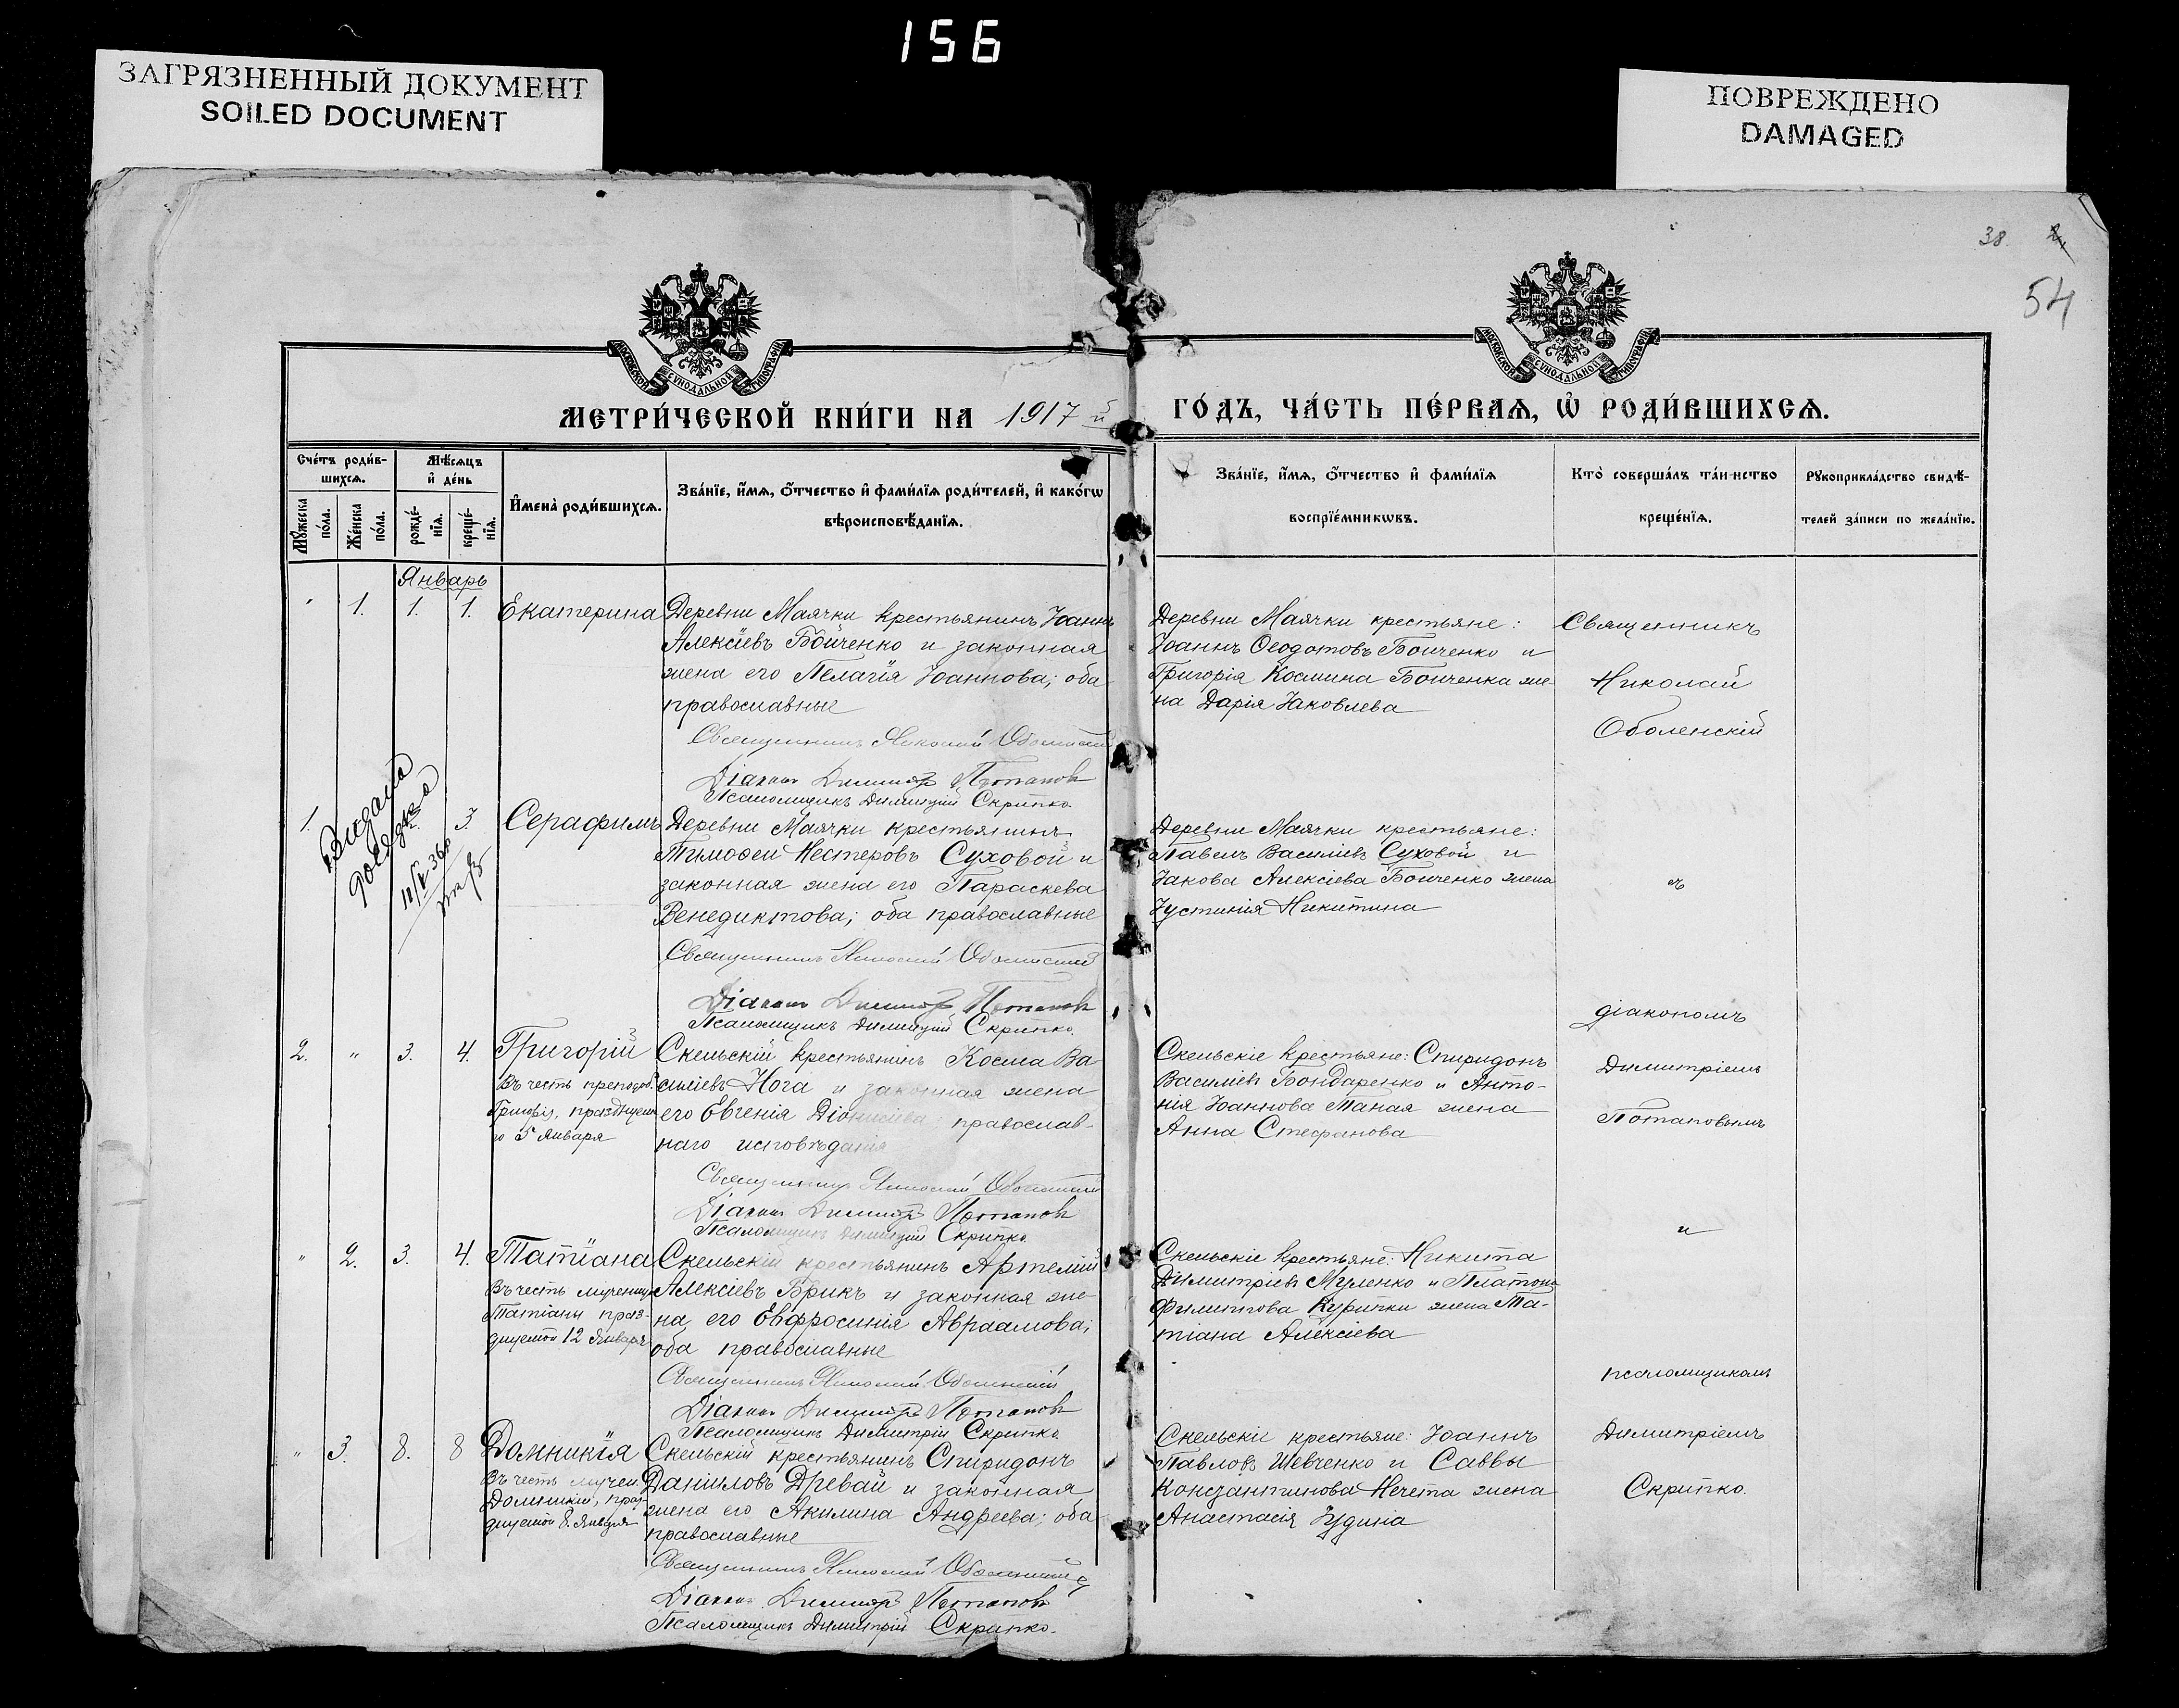 156
ЗАГРЯЗНЕННЫЙ ДОКУМЕНТ
SOILED DOCUMENT
ПОВРЕЖДЕНО
DAMAGED
38.
54
МОСКОВСКОЙ СѴНОДАЛЬНОЙ ТИПОГРАФІИ
МОСКОВСКОЙ СѴНОДАЛЬНОЙ ТИПОГРАФІИ
МЕТРИ́ЧЕСКОЙ КНИ́ГИ НА 1917 й
ГО́ДЪ, ЧА́СТЬ ПЕ́РВАѦ, Ѡ҆ РОДИ́ВШИХСѦ.
Сче́тъ роди́в-
шихсѧ.
Мꙋ́жеска
по́ла.
Же́нска
по́ла.
Мѣ́сѧцъ
и҆ де́нь
рожде́-
нїѧ.
креще́-
нїѧ.
И҆мена̀ роди́вшихсѧ.
Зва́нїе, и҆́мѧ, ѻ҆́тчество и҆ фами́лїѧ роди́телей, и҆ како́гѡ
вѣроисповѣ́данїѧ.
Зва́нїе, и҆́мѧ, ѻ҆́тчество и҆ фами́лїѧ
воспрїе́мникѡвъ.
Кто̀ соверша́лъ та́инство
креще́нїѧ.
Рꙋкоприкла́дство свидѣ́-
телей за́писи по жела́нїю.
Январь
1. 1. 1. Екатерина
Деревни Маячки крестьянинъ Іоаннъ
Алексіевъ Бойченко и законная
жена его Пелагія Іоаннова; оба
православные
Священникъ Николай Оболенскій
Діаконъ Димитрій Потаповъ
Псаломщикъ Димитрій Скрипко.
Деревни Маячки крестьяне:
Іоаннъ Ѳеодотовъ Бойченко и
Григорія Космина Бойченка же-
на Дарія Іаковлева
Священникъ
Николай
Оболенскій
1. 3. Серафимъ
Выдана
Деревни Маячки крестьянинъ
Тимоѳей Нестеровъ Суховой и
законная жена его Параскева
Венедиктова; оба православные
Священникъ Николай Оболенскій
Діаконъ Димитрій Потаповъ
Псаломщикъ Димитрій Скрипко.
Деревни Маячки крестьяне:
Павелъ Василіевъ Суховой и
Іакова Алексіева Бойченко жена
Іустинія Никитина
съ
діакономъ
2. " 3. 4. Григорій
Въ честь преподоб.
Григорія, празднуема-
го 5 Января
Скельскій крестьянинъ Косма Ва-
силіевъ Нога и законная жена
его Евгенія Діонисіева православ-
наго исповѣданія
Священникъ Николай Оболенскій
Діаконъ Димитрій Потаповъ
Псаломщикъ Димитрій Скрипко.
Скельскіе крестьяне: Спиридонъ
Василіевъ Бондаренко и Анто-
нія Іоаннова Таная жена
Анна Стефанова
Димитріемъ
Потаповымъ
и
" 2. 3. 4. Татіана
Въ честь мученицы
Татіаны праз-
днуемой 12 Января
Скельскій крестьянинъ Артемій
Алексіевъ Брикъ и законная же-
на его Евфросинія Авраамова;
оба православные
Священникъ Николай Оболенскій
Діаконъ Димитрій Потаповъ
Псаломщикъ Димитрій Скрипко
Скельскіе крестьяне: Никита
Димитріевъ Муленко и Платона
Филиппова Курипки жена Та-
тіана Алексіева
псаломщикомъ
" 3. 8. 8 Домникія
Въ честь мучен.
Домникіи, праз-
днуемой 8. Января
Скельскій крестьянинъ Спиридонъ
Даніиловъ Древай и законная
жена его Акилина Андреева; оба
православные
Священникъ Николай Оболенскій
Діаконъ Димитрій Потаповъ
Псаломщикъ Димитрій Скрипко.
Скельскіе крестьяне: Іоаннъ
Павловъ Шевченко и Саввы
Константинова Нечета жена
Анастасія Іудина
Димитріемъ
Скрипко.